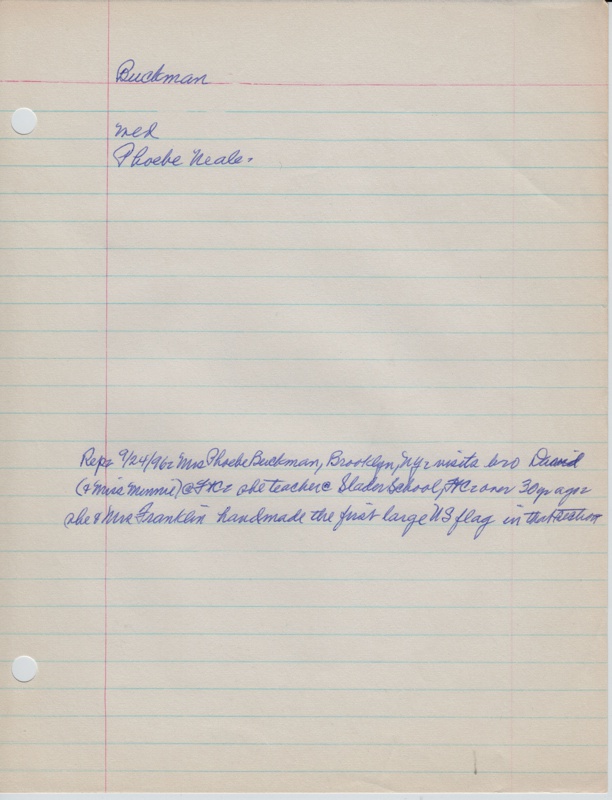 Buckman
Med
Phoebe Neale.
Rep: 9/24/96: Mrs Phoebe Buckman, Brooklyn, Ny: visits bro David
(& Miss Minnie) @ FKC: she teacher @ Slader School, over 30 yr ago:
she & Mrs Franklin handmade the first large US flag in that section